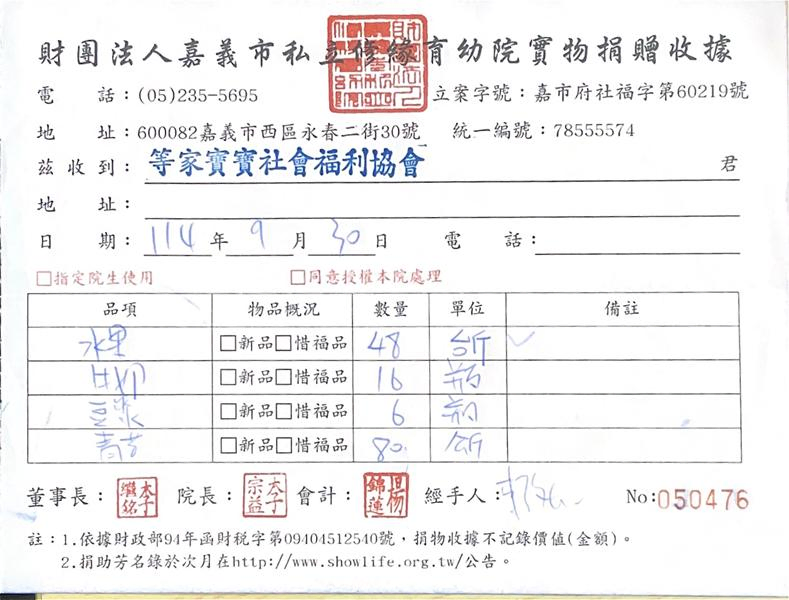 財團法人嘉義市私立修緣育幼院實物捐贈收據
電 話：(05)235-5695 立案字號：嘉市府社福字第60219號
地 址：600082嘉義市西區永春二街30號 統一編號：78555574
茲收到：等家寶寶社會福利協會 君
地 址：
日 期：114年9月30日 電 話：
□指定院生使用 □同意授權本院處理
品項 物品概況 數量 單位 備註
水果 □新品□惜福品 48 台斤
□新品□惜福品 16 瓶
豆漿 □新品□惜福品 6 瓶
□新品□惜福品 80 台斤
董事長： 院長： 會計： 經手人： No:050476
註：1.依據財政部94年函財稅字第09404512540號，捐物收據不記錄價值(金額)。
2.捐助芳名錄於次月在http://www.showlife.org.tw/公告。